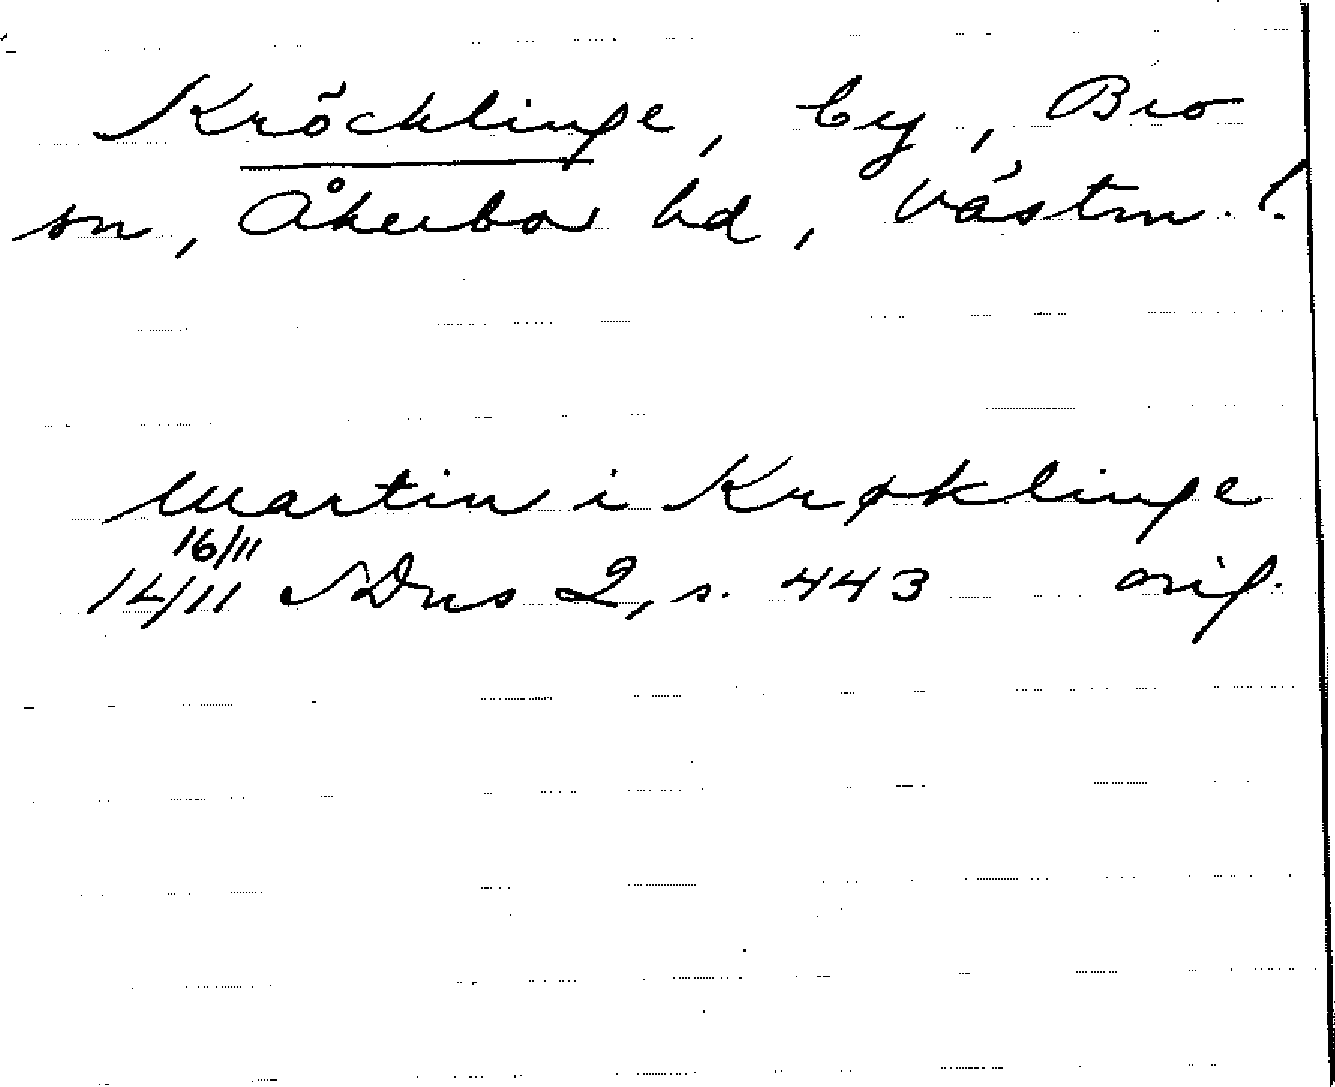 Kröcklinge, by, Bro
sn, Åkerbo hd, Västm. l.
Martin i Krøklinge
16/11
14/11 SDns 2, s. 443 orig.